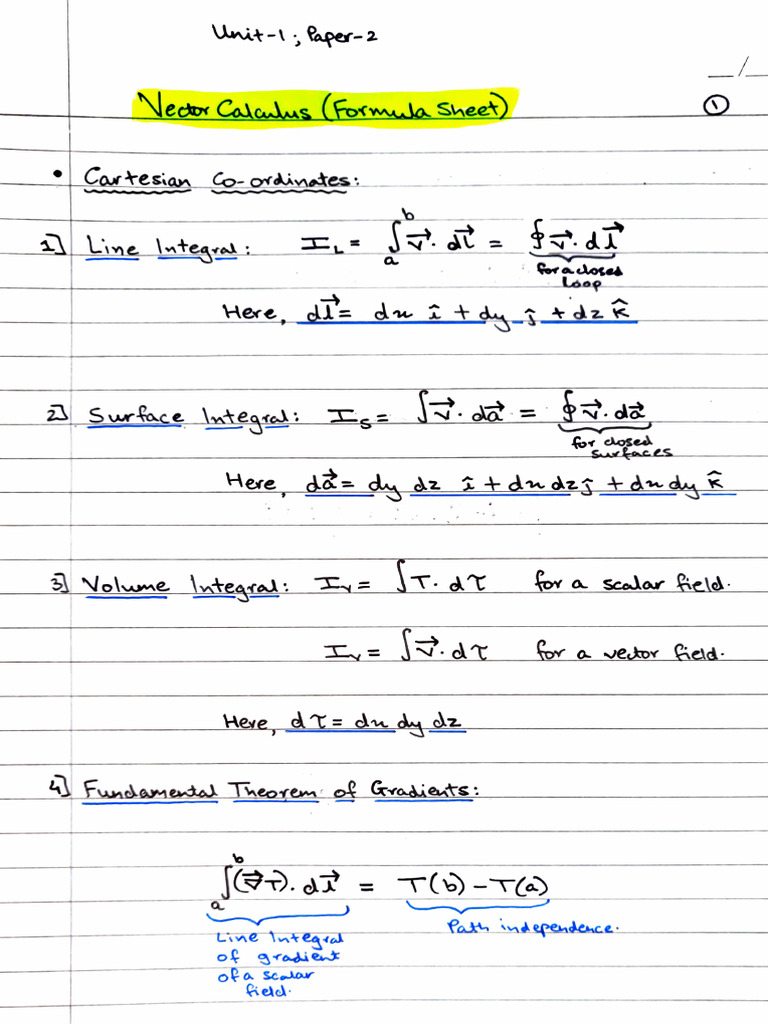 Unit-1 ; Paper-2
_ / _
Vector Calculus (Formula Sheet) ①
• Cartesian Co-ordinates:
1] Line Integral: I_L = ∫_a^b v⃗ · dl⃗ = ∮ v⃗ · dl⃗
for a closed
Loop
Here, dl⃗ = dx î + dy ĵ + dz k̂
2] Surface Integral: I_S = ∫ v⃗ · da⃗ = ∮ v⃗ · da⃗
for closed
surfaces
Here, da⃗ = dy dz î + dx dz ĵ + dx dy k̂
3] Volume Integral: I_V = ∫ T · dτ for a scalar field.
I_V = ∫ v⃗ · dτ for a vector field.
Here, dτ = dx dy dz
4] Fundamental Theorem of Gradients:
∫_a^b (∇⃗T) · dl⃗ = T(b) − T(a)
Line Integral
of gradient
of a scalar
field.
Path independence.